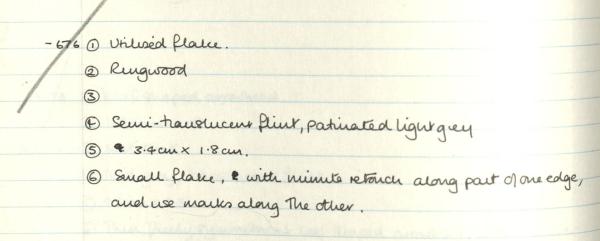 -676 ① Utilised flake.
② Ringwood
③
④ Semi-translucent flint, patinated light grey
⑤ 3.4cm x 1.8cm.
⑥ Small flake, with minute retouch along part of one edge,
and use marks along the other.